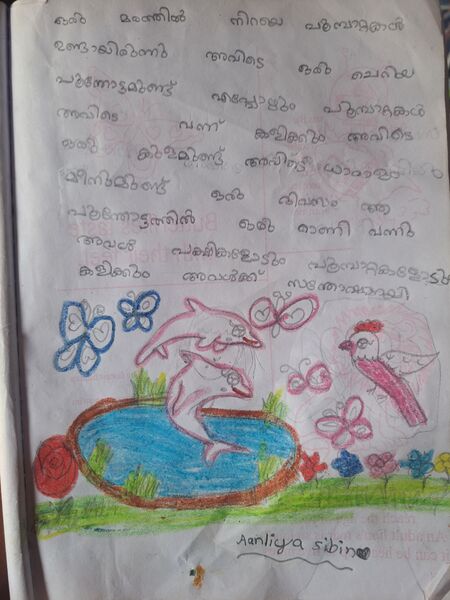 ഒരു മരത്തിൽ നിറയെ പൂമ്പാറ്റകൾ
ഉണ്ടായിരുന്നു അവിടെ ഒരു ചെറിയ
പൂന്തോട്ടമുണ്ട് എപ്പോഴും പൂമ്പാറ്റകൾ
അവിടെ വന്ന് കളിക്കും അവിടെ
ഒരു കുളമുണ്ട് അവിടെ ധാരാളം
മീനുമുണ്ട് ഒരു ദിവസം ആ
പൂന്തോട്ടത്തിൽ ഒരു റാണി വന്നു
അവൾ പക്ഷികളോടും പൂമ്പാറ്റകളോടും
കളിക്കും അവൾക്ക് സന്തോഷമായി
Aanliya sibin